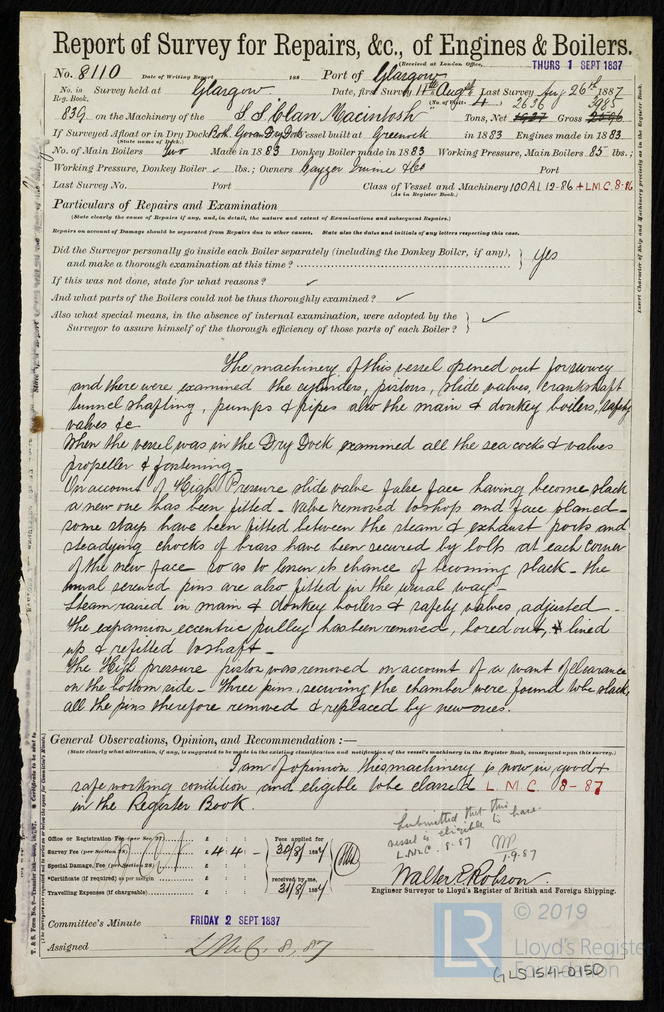 Report of Survey for Repairs, &c., of Engines & Boilers.
(Received at London Office, THURS 1 SEPT 1887
No. 8110 Date of Writing Report 188 Port of Glasgow
No. in Reg. Book. Survey held at Glasgow Date, first Survey 11th Augst Last Survey Aug 26th 1887
(No. of Visits 4)
839 on the Machinery of the S.S. Clan Macintosh Tons, Net 2636 Gross 3985
If Surveyed Afloat or in Dry Dock Both. Govan Dry Dock Vessel built at Greenock in 1883 Engines made in 1883
(State name of Dock.)
No. of Main Boilers Two Made in 1883 Donkey Boiler made in 1883 Working Pressure, Main Boilers 85 lbs.;
Working Pressure, Donkey Boiler ✓ lbs.; Owners Cayzer Irvine & Co Port
Last Survey No. Port Class of Vessel and Machinery 100A1 12-86 + L.M.C. 8-86
(As in Register Book.)
Particulars of Repairs and Examination
(State clearly the cause of Repairs if any, and, in detail, the nature and extent of Examinations and subsequent Repairs.)
Repairs on account of Damage should be separated from Repairs due to other causes. State also the dates and initials of any letters respecting this case.
Did the Surveyor personally go inside each Boiler separately (including the Donkey Boiler, if any),
and make a thorough examination at this time? Yes
If this was not done, state for what reasons? ✓
And what parts of the Boilers could not be thus thoroughly examined? ✓
Also what special means, in the absence of internal examination, were adopted by the
Surveyor to assure himself of the thorough efficiency of those parts of each Boiler? ✓
The machinery of this vessel opened out for survey
and there were examined the cylinders, pistons, slide valves, crankshaft
tunnel shafting, pumps & pipes also the main & donkey boilers, safety
valves &c
When the vessel was in the Dry Dock examined all the sea cocks & valves
propeller & fastening
On account of High Pressure slide valve false face having become slack
a new one has been fitted - Valve removed to shop and face planed -
some stays have been fitted between the steam & exhaust ports and
steadying chocks of brass have been secured by bolts at each corner
of the new face so as to lessen its chance of becoming slack - the
usual screwed pins are also fitted in the usual way -
Steam raised in main & donkey boilers & safety valves adjusted -
The expansion eccentric pulley has been removed, bored out, & lined
up & refitted to shaft -
The High pressure piston was removed on account of a want of clearance
on the bottom side - Three pins, securing the chamber were found to be slack,
all the pins therefore removed & replaced by new ones.
General Observations, Opinion, and Recommendation :—
(State clearly what alteration, if any, is suggested to be made in the existing classification and notification of the vessel's machinery in the Register Book, consequent upon this survey.)
I am of opinion this machinery is now in good &
safe working condition and eligible to be classed L.M.C. 8-87
in the Register Book.
Office or Registration Fee (per Sec. 27) £ : :
Survey Fee (per Section 28) £ 4 : 4 : -
Special Damage Fee (per Section 28) £ : :
*Certificate (if required) as per margin £ : :
Travelling Expenses (if chargeable) £ : :
Fees applied for
30/8/1887
received by me,
31/8/1887
Submitted that this
vessel is eligible to have
L.M.C. 8-87
1.9.87
Walter E. Robson
Engineer Surveyor to Lloyd's Register of British and Foreign Shipping.
Committee's Minute FRIDAY 2 SEPT 1887
Assigned L.M.C. 8, 87
© 2019
LR Lloyd's Register
Foundation
GLS154-0150